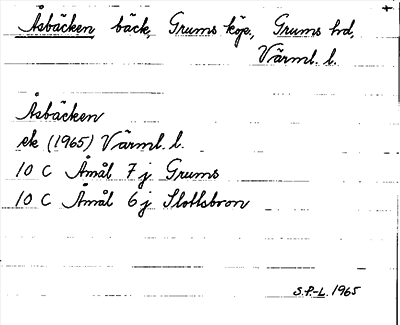 Åsbäcken bäck, Grums köp., Grums hd,
Värml. l.
Åsbäcken
ek (1965) Värml. l.
10 C Åmål 7 j Grums
10 C Åmål 6 j Slottsbron
S.P-L. 1965